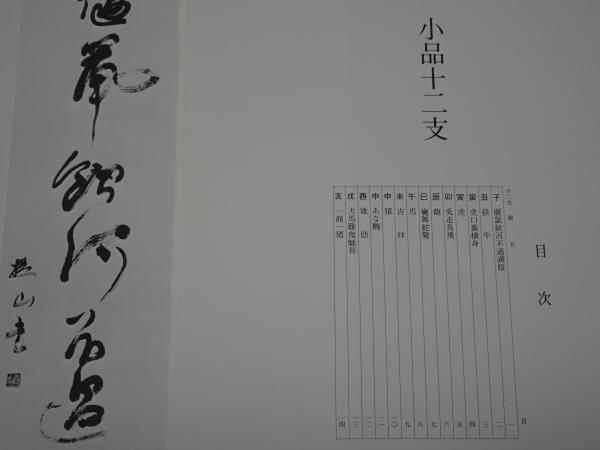 小品十二支
目次
十二支 題名 頁
一
子 偃鼠飲河不過満腹 二
丑 鉄牛 三
寅 虎口裏横身 四
寅 虎 五
卯 兎走烏飛 六
辰 龍 七
巳 窮舞蛇驚 八
午 馬 九
未 吉祥 一〇
申 猿 一一
申 あな醜 一二
酉 鶏肋 一三
戌 犬馬難鬼魅易 一四
亥 一龍一猪
偃鼠飲河不過